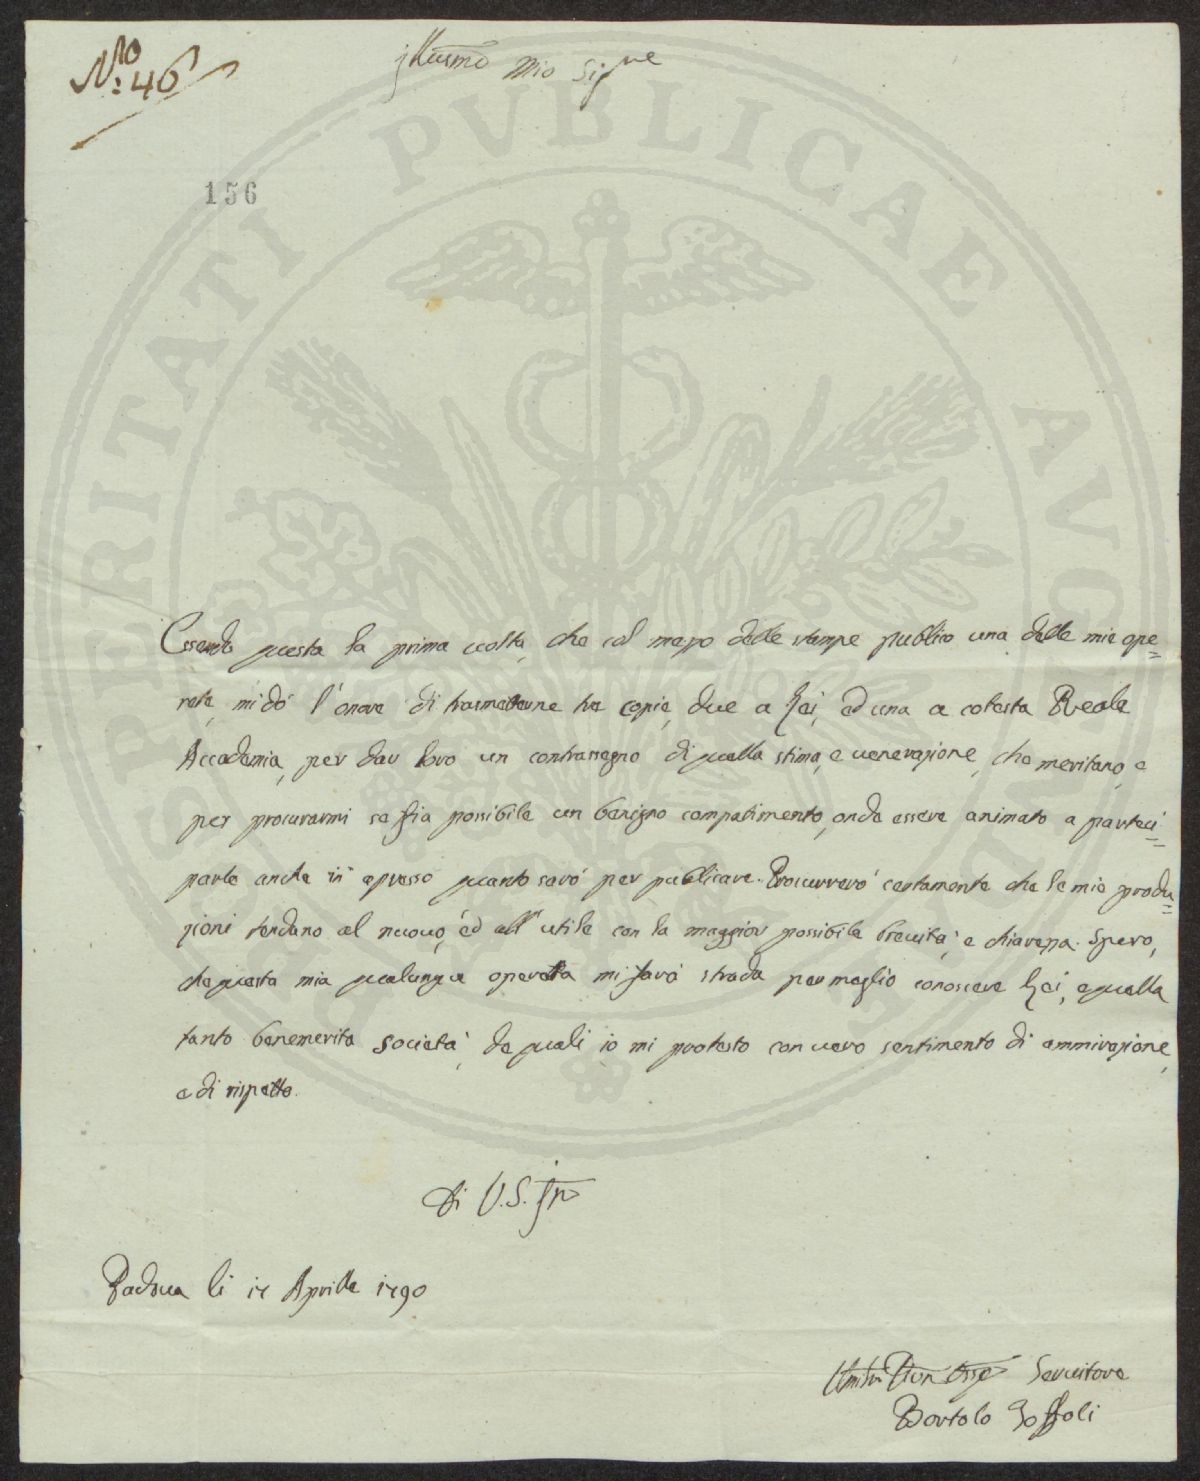 No: 46
Illusmo Mio Sigre
156
Essendo questa la prima uolta, che col mezzo delle stampe publico una delle mie ope=
rete, mi dó l'onore di trasmeterne tre copie, due a Lei, ed una a cotesta Reale
Accademia, per dar loro un contrassegno di quella stima, e uenerazione, che meritano, e
per procurarmi se fia possibile un benigno compatimento, onde essere animato a parteci=
parle anche in apresso quanto saró per publicare. Procurreró certamente che le mie produ=
zioni tendano al nuouo, ed all'utile con la maggior possibile breuitá, e chiarezza. Spero,
che questa mia qualunque operetta mi fará strada per meglio conoscere Lei, e quella
tanto benemerita Societá, de quali io mi protesto con uero sentimento di ammirazione,
e di rispetto.
Di V.S. Ill
Padoua li 17 Aprille 1790
Seruitore
Bortolo
PROSPERITATI PVBLICAE AVGENDAE